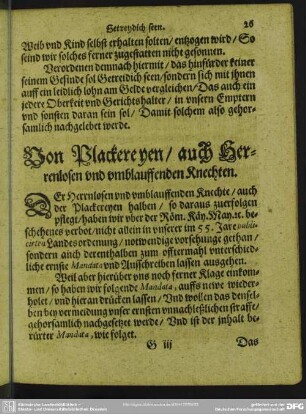 Getreydich seen. 26
Weib vnd Kind selbst erhalten solten / entzogen wird / So
seind wir solches ferner zugestatten nicht gesonnen.
Verordenen demnach hiermit / das hinfürder keiner
seinem Gesinde sol Getreidich seen / sondern sich mit jhnen
auff ein leidlich lohn am Gelde vergleichen / Das auch ein
jedere Oberkeit vnd Gerichtshalter / in vnsern Emptern
vnd sonsten daran sein sol / Damit solchem also gehor-
samlich nachgelebet werde.
Von Plackereyen / auch Her-
renlosen vnd vmblauffenden Knechten.
DEr Herrnlosen vnd vmblauffenden Knechte / auch
der Plackereyen halben / so daraus zuerfolgen
pflegt / haben wir vber der Röm. Käy. May. etc. be-
schehenes verbot / nicht allein in vnserer im 55. Jare publi-
cirten Landesordenung / notwendige vorsehunge gethan /
sondern auch derenthalben zum offtermahl vnterschied-
liche ernste Mandata vnd Ausschreiben lassen ausgehen.
Weil aber hierüber vns noch ferner Klage einkom-
men / so haben wir folgende Mandata, auffs newe wieder-
holet / vnd hieran drücken lassen / Vnd wollen das densel-
ben bey vermeidung vnser ernsten vnnachleßlichen straffe /
gehorsamlich nachgesetzt werde / Vnd ist der inhalt be-
rürter Mandata, wie folget.
G iij Das